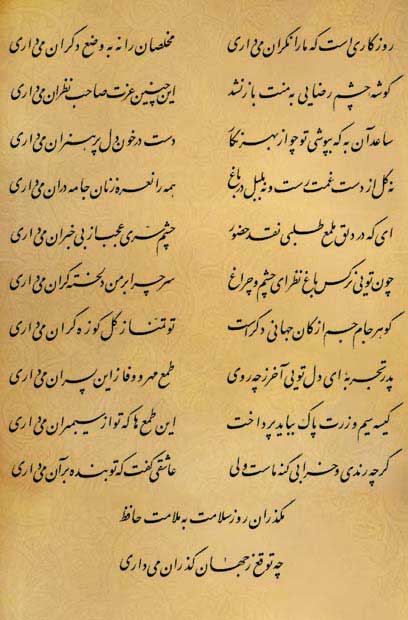 روزگاریست که ما را نگران می‌داری مخلصان را نه به وضع دگران می‌داری
گوشه چشم رضایی به منت باز نشد این چنین عزت صاحب نظران می‌داری
ساعد آن به که بپوشی تو چو از بهر نگار دست در خون دل پر هنران می‌داری
نه گل از دست غمت رست و نه بلبل در باغ همه را نعره زنان جامه دران می‌داری
ای که در دلق ملمع طلبی نقد حضور چشم سری عجب از بی خبران می‌داری
چون تویی نرگس باغ نظر ای چشم و چراغ سر چرا بر من دلخسته گران می‌داری
گوهر جام جم از کان جهانی دگر است تو تمنا ز گل کوزه گران می‌داری
پدر تجربه ای دل تویی آخر ز چه روی طمع مهر و وفا زین پسران می‌داری
کیسه سیم و زرت پاک بباید پرداخت این طمع ها که تو از سیمبران می‌داری
گر چه رندی و خرابی گنه ماست ولی عاشقی گفت که تو بنده بر آن می‌داری
مگذران روز سلامت به ملامت حافظ
چه توقع ز جهان گذران می‌داری